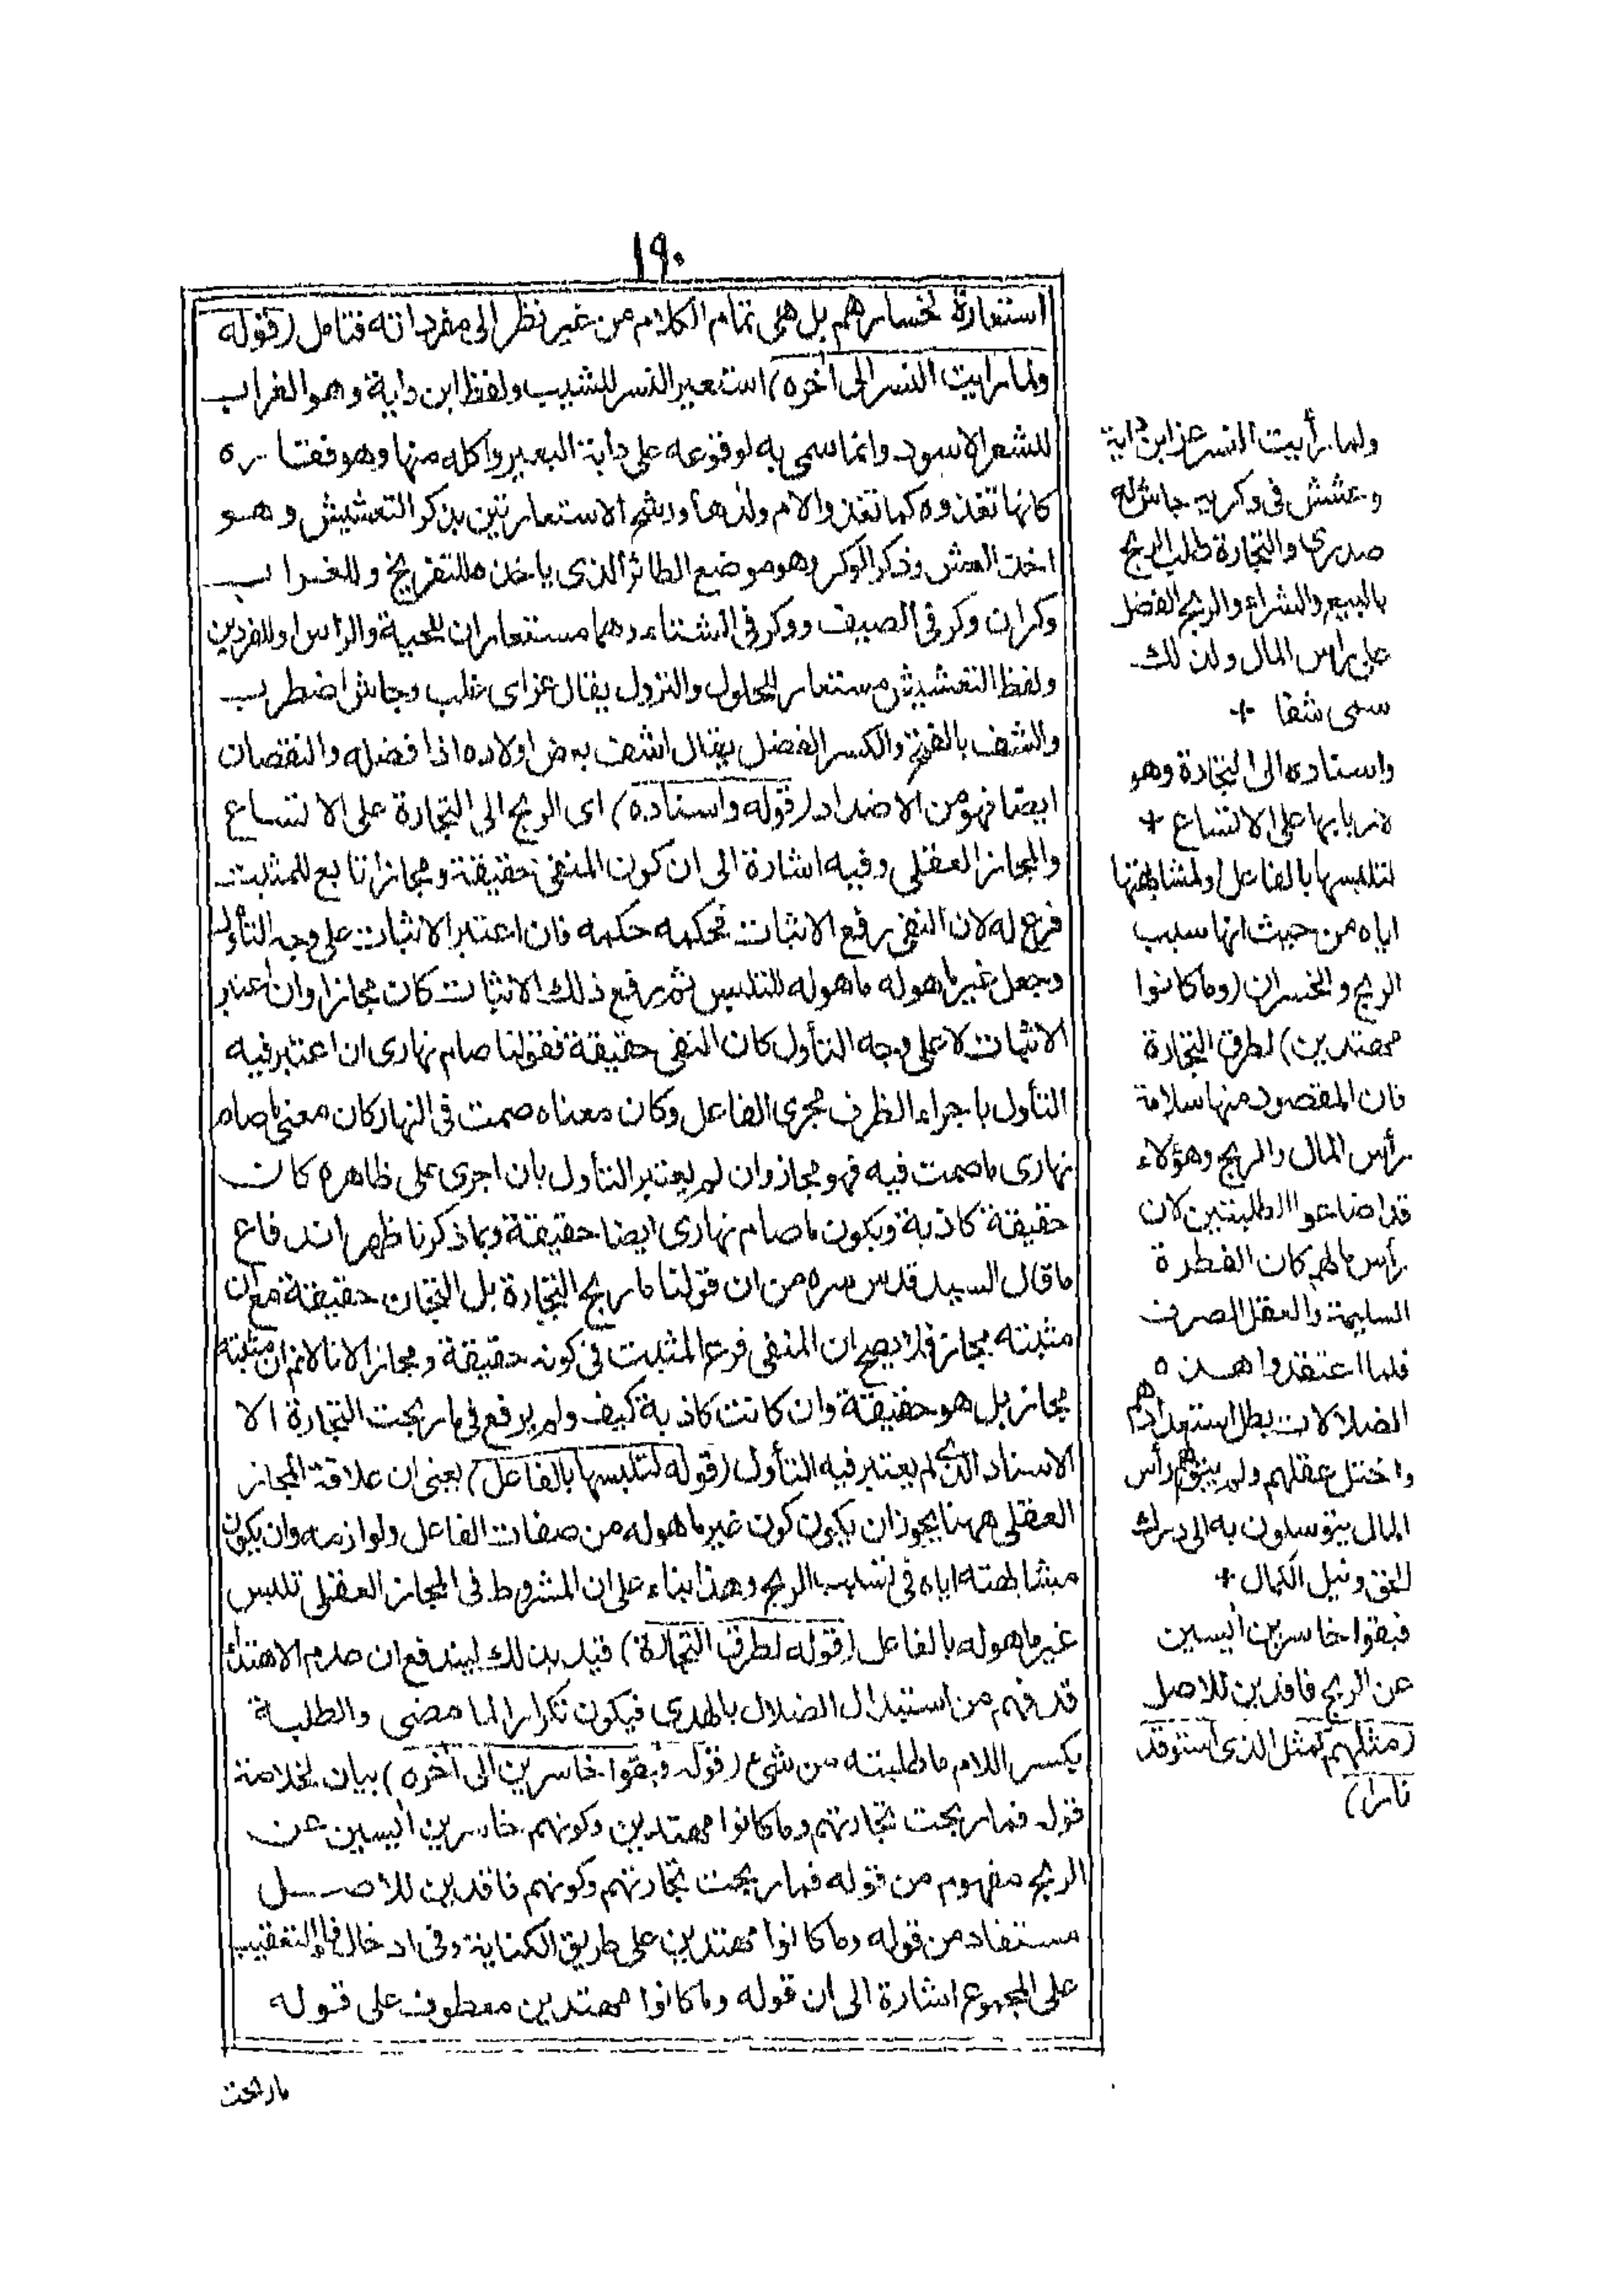 ١٩٠
استعارة لخسارهم بل هى تمام الكلام من غير نظر الى مفرداته فتامل (قوله
ولما رايت النسر الى آخره) استعير النسر للشيب ولفظ ابن داية وهو الغراب
للشعر الاسود وانما سمى به لوقوعه على داية البعير واكله منها وهو فقاره
كانها تغذوه كما تغذو الام ولدها ورشح الاستعارتين بذكر التعشيش وهو
اخذ العش وذكر الوكر وهو موضع الطائر الذى ياخذه للتفريخ وللغراب
وكران وكر فى الصيف ووكر فى الشتاء وهما مستعاران للحية والراس او للفودين
ولفظ التعشيش مستعار للحلول والنزول يقال عز اى غلب وجاش اضطرب
والشف بالفتح والكسر الفضل يقال اشف بعض اولاده اذا فضله والنقصان
ايضا فهو من الاضداد (قوله واسناده) اى الربح الى التجارة على الاتساع
والمجاز العقلى وفيه اشارة الى ان كون المنفى حقيقة ومجازا تابع للمثبت
فرع له لان النفى رفع الاثبات فحكمه حكمه فان اعتبر الاثبات على وجه التأول
وجعل غير ما هو له ما هو له للتلبس ثم رفع ذلك الاثبات كان مجازا وان اعتبر
الاثبات لا على وجه التأول كان النفى حقيقة فقولنا صام نهارى ان اعتبر فيه
التأول باجراء الظرف مجرى الفاعل وكان معناه صمت فى النهار كان معنى ما صام
نهارى ما صمت فيه فهو مجاز وان لم يعتبر التأول بان اجرى على ظاهره كان
حقيقة كاذبة ويكون ما صام نهارى ايضا حقيقة وبما ذكرنا ظهر اندفاع
ما قال السيد قدس سره من ان قولنا ما ربح التجارة بل التجار حقيقة مع ان
مثبته مجاز فلا يصح ان المنفى فرع المثبت فى كونه حقيقة ومجازا لانا لانم ان مثبته
مجاز بل هو حقيقة وان كانت كاذبة كيف ولم يرفع فى ما ربحت التجارة الا
الاسناد الذى لم يعتبر فيه التأول (قوله لتلبسها بالفاعل) يعنى ان علاقة المجاز
العقلى ههنا يجوز ان يكون كون غير ما هو له من صفات الفاعل ولوازمه وان يكون
مشابهته اياه فى تسبب الربح وهذا بناء على ان المشروط فى المجاز العقلى تلبس
غير ما هو له بالفاعل (قوله لطرق التجارة) قيد بذلك ليندفع ان عدم الاهتداء
قد فهم من استبدال الضلال بالهدى فيكون تكرارا لما مضى والطلبة
بكسر اللام ما طلبته من شئ (قوله فبقوا خاسرين الى آخره) بيان لخلاصة
قوله فما ربحت تجارتهم وما كانوا مهتدين وكونهم خاسرين آئسين عن
الربح مفهوم من قوله فما ربحت تجارتهم وكونهم فاقدين للاصل
مستفاد من قوله وما كانوا مهتدين على طريق الكناية وفى ادخال فاء التعقيب
على المجموع اشارة الى ان قوله وما كانوا مهتدين معطوف على قوله
ما ربحت
ولما رأيت النسر عز ابن داية
وعشش فى وكريه جاش له
صدرى والتجارة طلب الربح
بالبيع والشراء والربح الفضل
على رأس المال ولذلك
سمى شفا +
واسناده الى التجارة وهو
لاربابها على الاتساع +
لتلبسها بالفاعل او لمشابهتها
اياه من حيث انها سبب
الربح والخسران (وما كانوا
مهتدين) لطرق التجارة
فان المقصود منها سلامة
رأس المال والربح وهؤلاء
قد اضاعوا الطلبتين لان
رأس مالهم كان الفطرة
السليمة والعقل الصرف
فلما اعتقدوا هذه
الضلالات بطل استعدادهم
واختل عقلهم ولم يبق لهم رأس
المال يتوسلون به الى درك
الحق ونيل الكمال +
فبقوا خاسرين آئسين
عن الربح فاقدين للاصل
(مثلهم كمثل الذى استوقد
نارا)